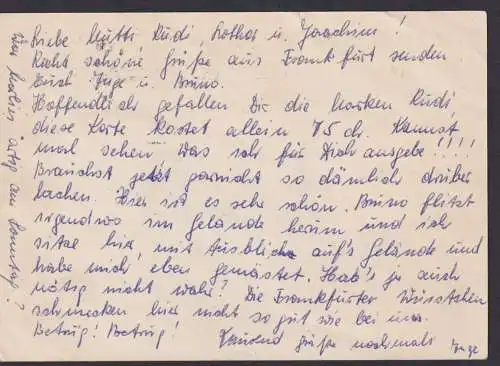 Liebe Mutti Rudi, Lothar u. Joachim!
Recht schöne Grüße aus Frankfurt senden
Euch Inge u. Bruno.
Hoffendlich gefallen Dir die Marken Rudi,
diese Karte kostet allein 75 ch. Kannst
mal sehen was ich für Dich ausgebe!!!!
Brauchst jetzt garnicht so dämlich drüber
lachen. Hier ist es sehr schön. Bruno flitzt
irgendwo im Gelände herum und ich
sitze hier, mit Ausblick auf's Gelände und
habe mich eben gemästet. Hab's ja auch
nötig nicht wahr? Die Frankfurter Würstchen
schmecken hier nicht so gut wie bei uns.
Betrug! Betrug! Tausend Grüße nochmals Inge
Was machen am Sonntag?